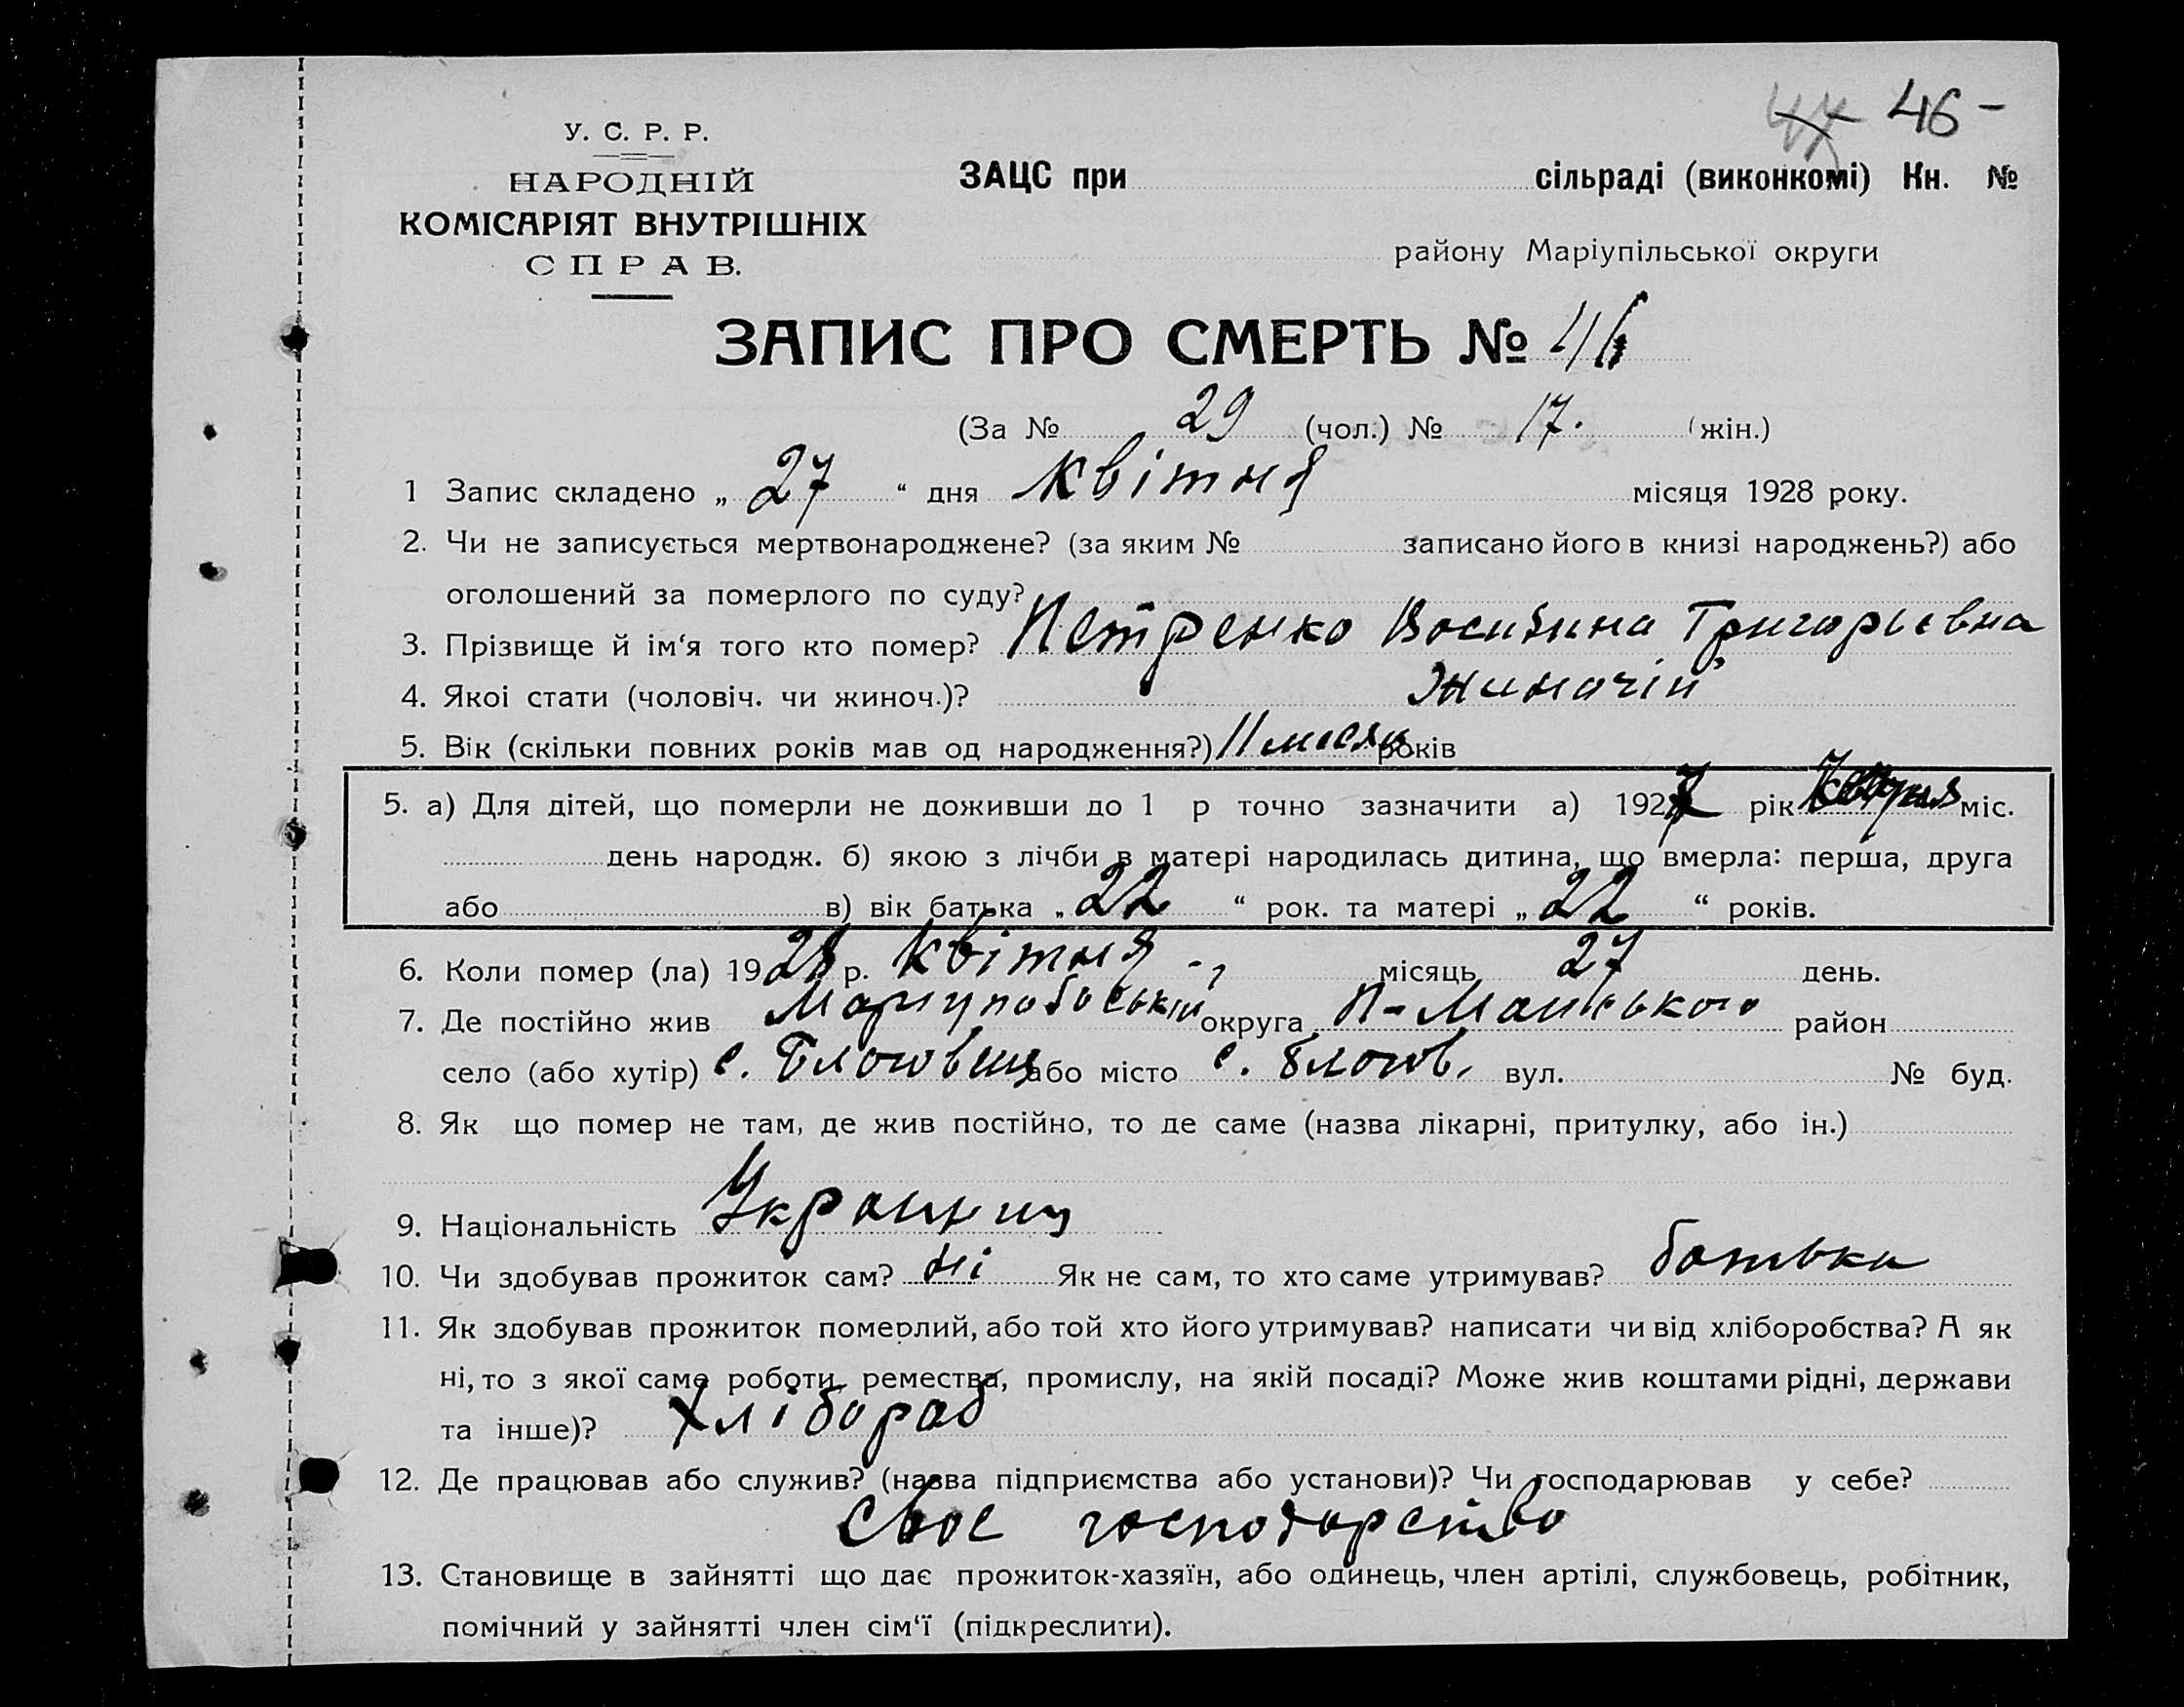 47 46 -
У. С. Р. Р.
НАРОДНІЙ
КОМІСАРІЯТ ВНУТРІШНІХ
СПРАВ.
ЗАЦС при сільраді (виконкомі) Кн. №
району Маріупільської округи
ЗАПИС ПРО СМЕРТЬ № 46
(За № 29 (чол.) № 17. (жін.)
1 Запис складено „ 27 “ дня квітня місяця 1928 року.
2. Чи не записується мертвонароджене? (за яким № записано його в книзі народжень?) або
оголошений за померлого по суду?
3. Прізвище й ім‘я того кто помер? Петренко Григорьевна
4. Якоі стати (чоловіч. чи жиноч.)? Жиночій
5. Вік (скільки повних років мав од народження?) 11 месяц років
5. а) Для дітей, що померли не доживши до 1 р точно зазначити а) 1927 рік міс.
день народж. б) якою з лічби в матері народилась дитина, що вмерла: перша, друга
або в) вік батька „ 22 “ рок. та матері „ 22 “ років.
6. Коли помер (ла) 1928 р. квітня місяць 27 день.
7. Де постійно жив округа район
село (або хутір) с. або місто с. вул. № буд.
8. Як що помер не там, де жив постійно, то де саме (назва лікарні, притулку, або ін.)
9. Національність
10. Чи здобував прожиток сам? ні Як не сам, то хто саме утримував? батьки
11. Як здобував прожиток померлий, або той хто його утримував? написати чи від хліборобства? А як
ні, то з якої саме роботи, ремества, промислу, на якій посаді? Може жив коштами рідні, держави
та інше)? Хлібораб
12. Де працював або служив? (назва підприємства або установи)? Чи господарював у себе?
свое господарство
13. Становище в зайнятті що дає прожиток-хазяїн, або одинець, член артілі, службовець, робітник,
помічний у зайнятті член сім‘ї (підкреслити).